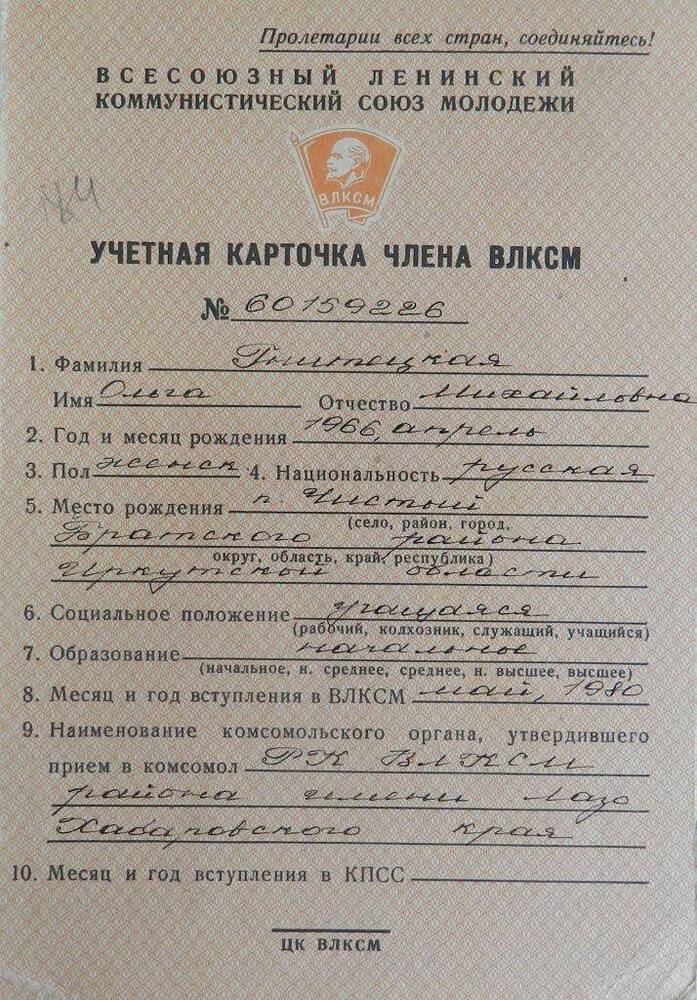 Пролетарии всех стран, соединяйтесь!
ВСЕСОЮЗНЫЙ ЛЕНИНСКИЙ
КОММУНИСТИЧЕСКИЙ СОЮЗ МОЛОДЕЖИ
ВЛКСМ
УЧЕТНАЯ КАРТОЧКА ЧЛЕНА ВЛКСМ
№ 60159226
1. Фамилия
Имя Ольга Отчество Михайловна
2. Год и месяц рождения 1966, апрель
3. Пол женск 4. Национальность русская
5. Место рождения п. Чистый
(село, район, город,
Братского района
округ, область, край, республика)
Иркутской области
6. Социальное положение учащаяся
(рабочий, колхозник, служащий, учащийся)
7. Образование начальное
(начальное, н. среднее, среднее, н. высшее, высшее)
8. Месяц и год вступления в ВЛКСМ май, 1980
9. Наименование комсомольского органа, утвердившего
прием в комсомол РК ВЛКСМ
района имени Лазо
Хабаровского края
10. Месяц и год вступления в КПСС
ЦК ВЛКСМ